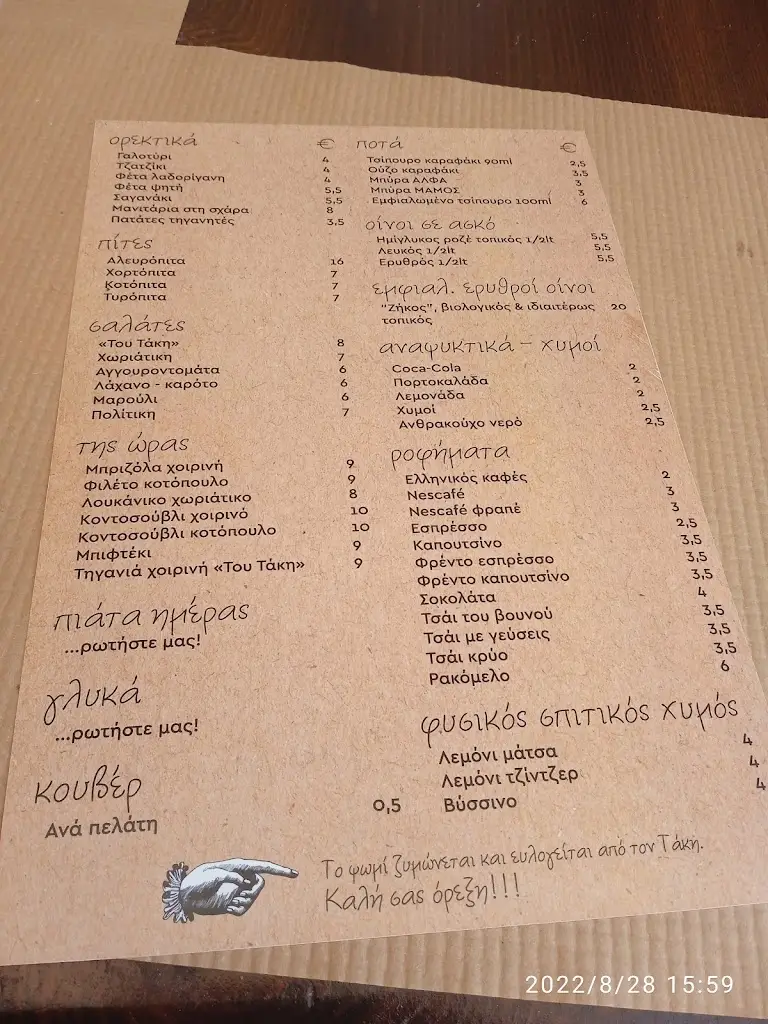 ορεκτικά €
Γαλοτύρι 4
Τζατζίκι 4
Φέτα λαδορίγανη 4
Φέτα ψητή 5,5
Σαγανάκι 5,5
Μανιτάρια στη σχάρα 8
Πατάτες τηγανητές 3,5
πίτες
Αλευρόπιτα 16
Χορτόπιτα 7
Κοτόπιτα 7
Τυρόπιτα 7
σαλάτες
«Του Τάκη» 8
Χωριάτικη 7
Αγγουροντομάτα 6
Λάχανο - καρότο 6
Μαρούλι 6
Πολίτικη 7
της ώρας
Μπριζόλα χοιρινή 9
Φιλέτο κοτόπουλο 9
Λουκάνικο χωριάτικο 8
Κοντοσούβλι χοιρινό 10
Κοντοσούβλι κοτόπουλο 10
Μπιφτέκι 9
Τηγανιά χοιρινή «Του Τάκη» 9
πιάτα ημέρας
...ρωτήστε μας!
γλυκά
...ρωτήστε μας!
κουβέρ
Ανά πελάτη 0,5
ποτά €
Τσίπουρο καραφάκι 90ml 2,5
Ούζο καραφάκι 3,5
Μπύρα ΑΛΦΑ 3
Μπύρα ΜΑΜΟΣ 3
Εμφιαλωμένο τσίπουρο 100ml 6
οίνοι σε ασκό
Ημίγλυκος ροζέ τοπικός 1/2lt 5,5
Λευκός 1/2lt 5,5
Ερυθρός 1/2lt 5,5
εμφιαλ. ερυθροί οίνοι
"Ζήκος", βιολογικός & ιδιαιτέρως 20
τοπικός
αναψυκτικά - χυμοί
Coca-Cola 2
Πορτοκαλάδα 2
Λεμονάδα 2
Χυμοί 2,5
Ανθρακούχο νερό 2,5
ροφήματα
Ελληνικός καφές 2
Nescafé 3
Nescafé φραπέ 3
Εσπρέσσο 2,5
Καπουτσίνο 3,5
Φρέντο εσπρέσσο 3,5
Φρέντο καπουτσίνο 3,5
Σοκολάτα 4
Τσάι του βουνού 3,5
Τσάι με γεύσεις 3,5
Τσάι κρύο 3,5
Ρακόμελο 6
φυσικός σπιτικός χυμός
Λεμόνι μάτσα 4
Λεμόνι τζίντζερ 4
Βύσσινο 4
Το ψωμί ζυμώνεται και ευλογείται από τον Τάκη.
Καλή σας όρεξη!!!
2022/8/28 15:59